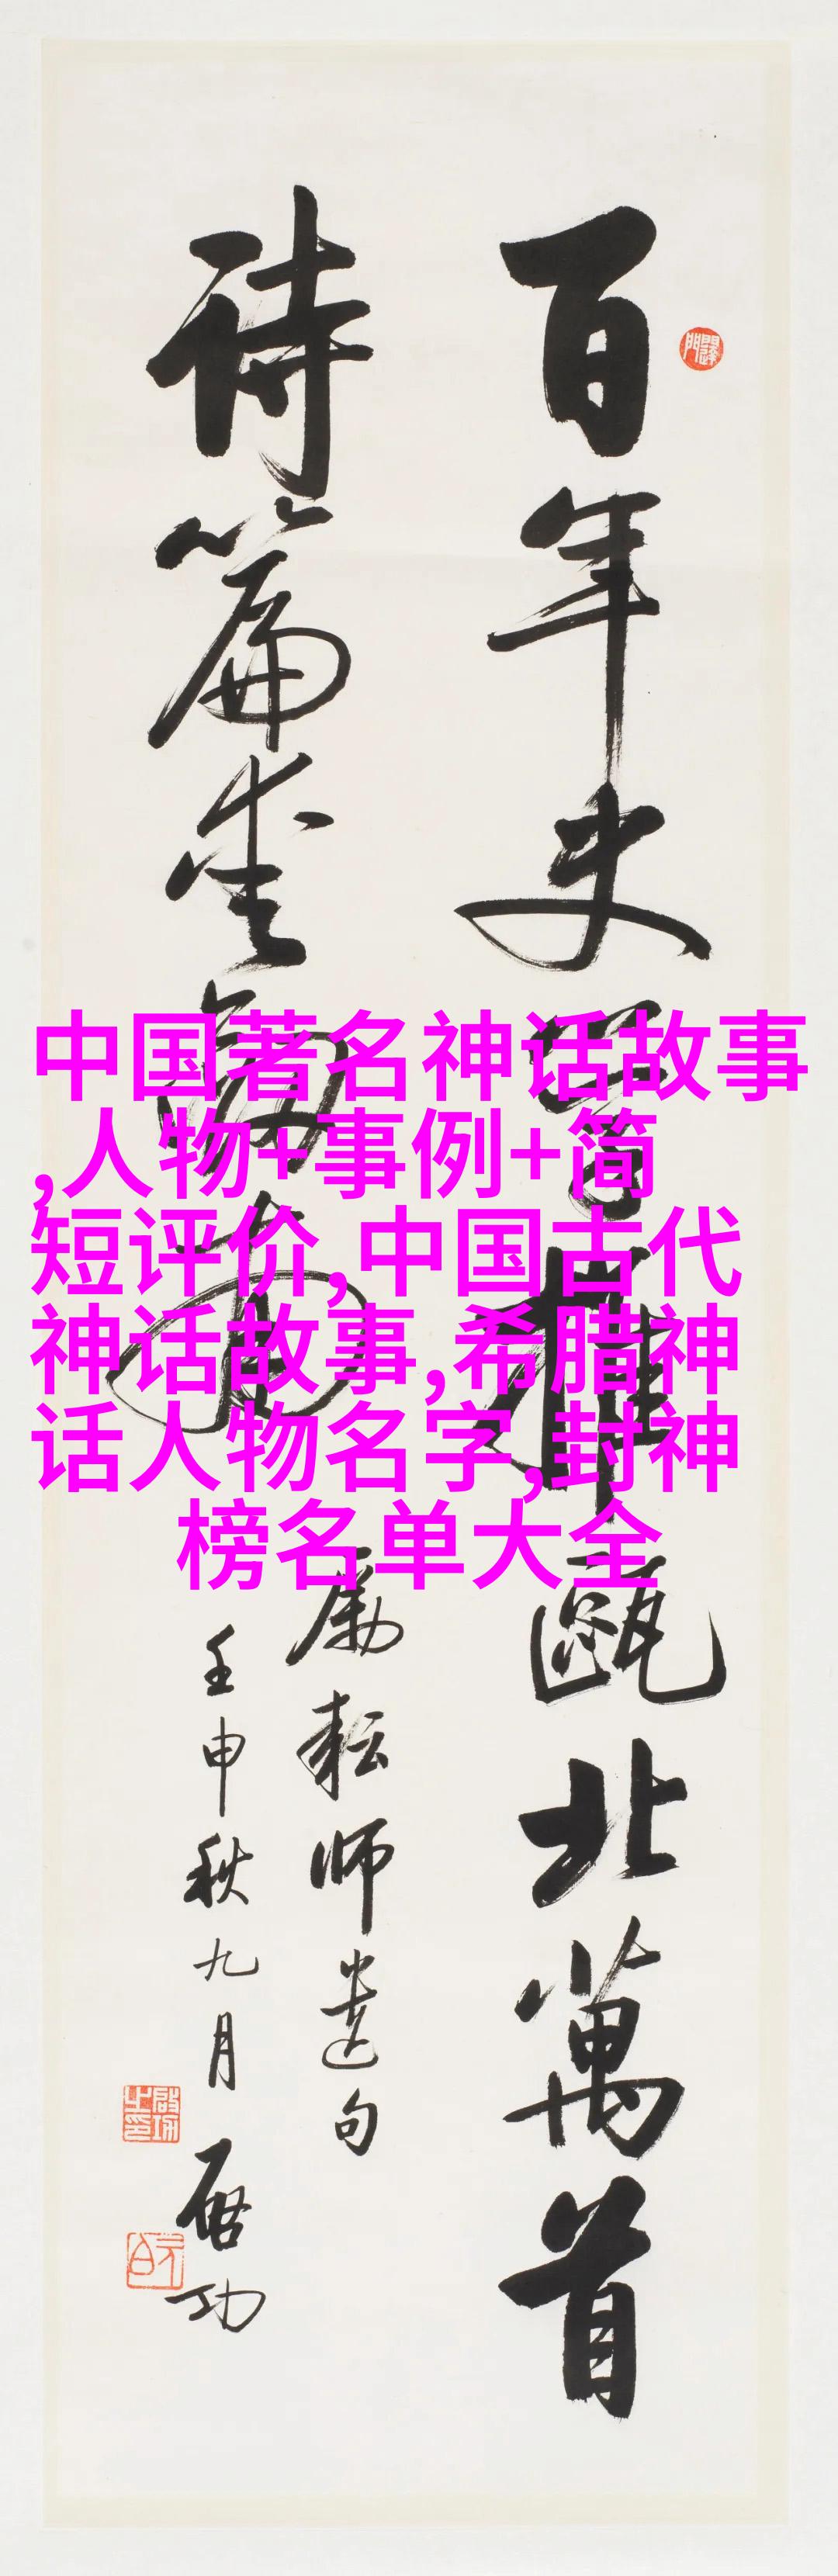 百年史學推甌北萬首
詩篇愛劍南
勵耘師遺句
壬申秋九月
啟功
啟功之印
中国著名神话故事
,人物+事例+简
短评价,中国古代
神话故事,希腊神
话人物名字,封神
榜名单大全